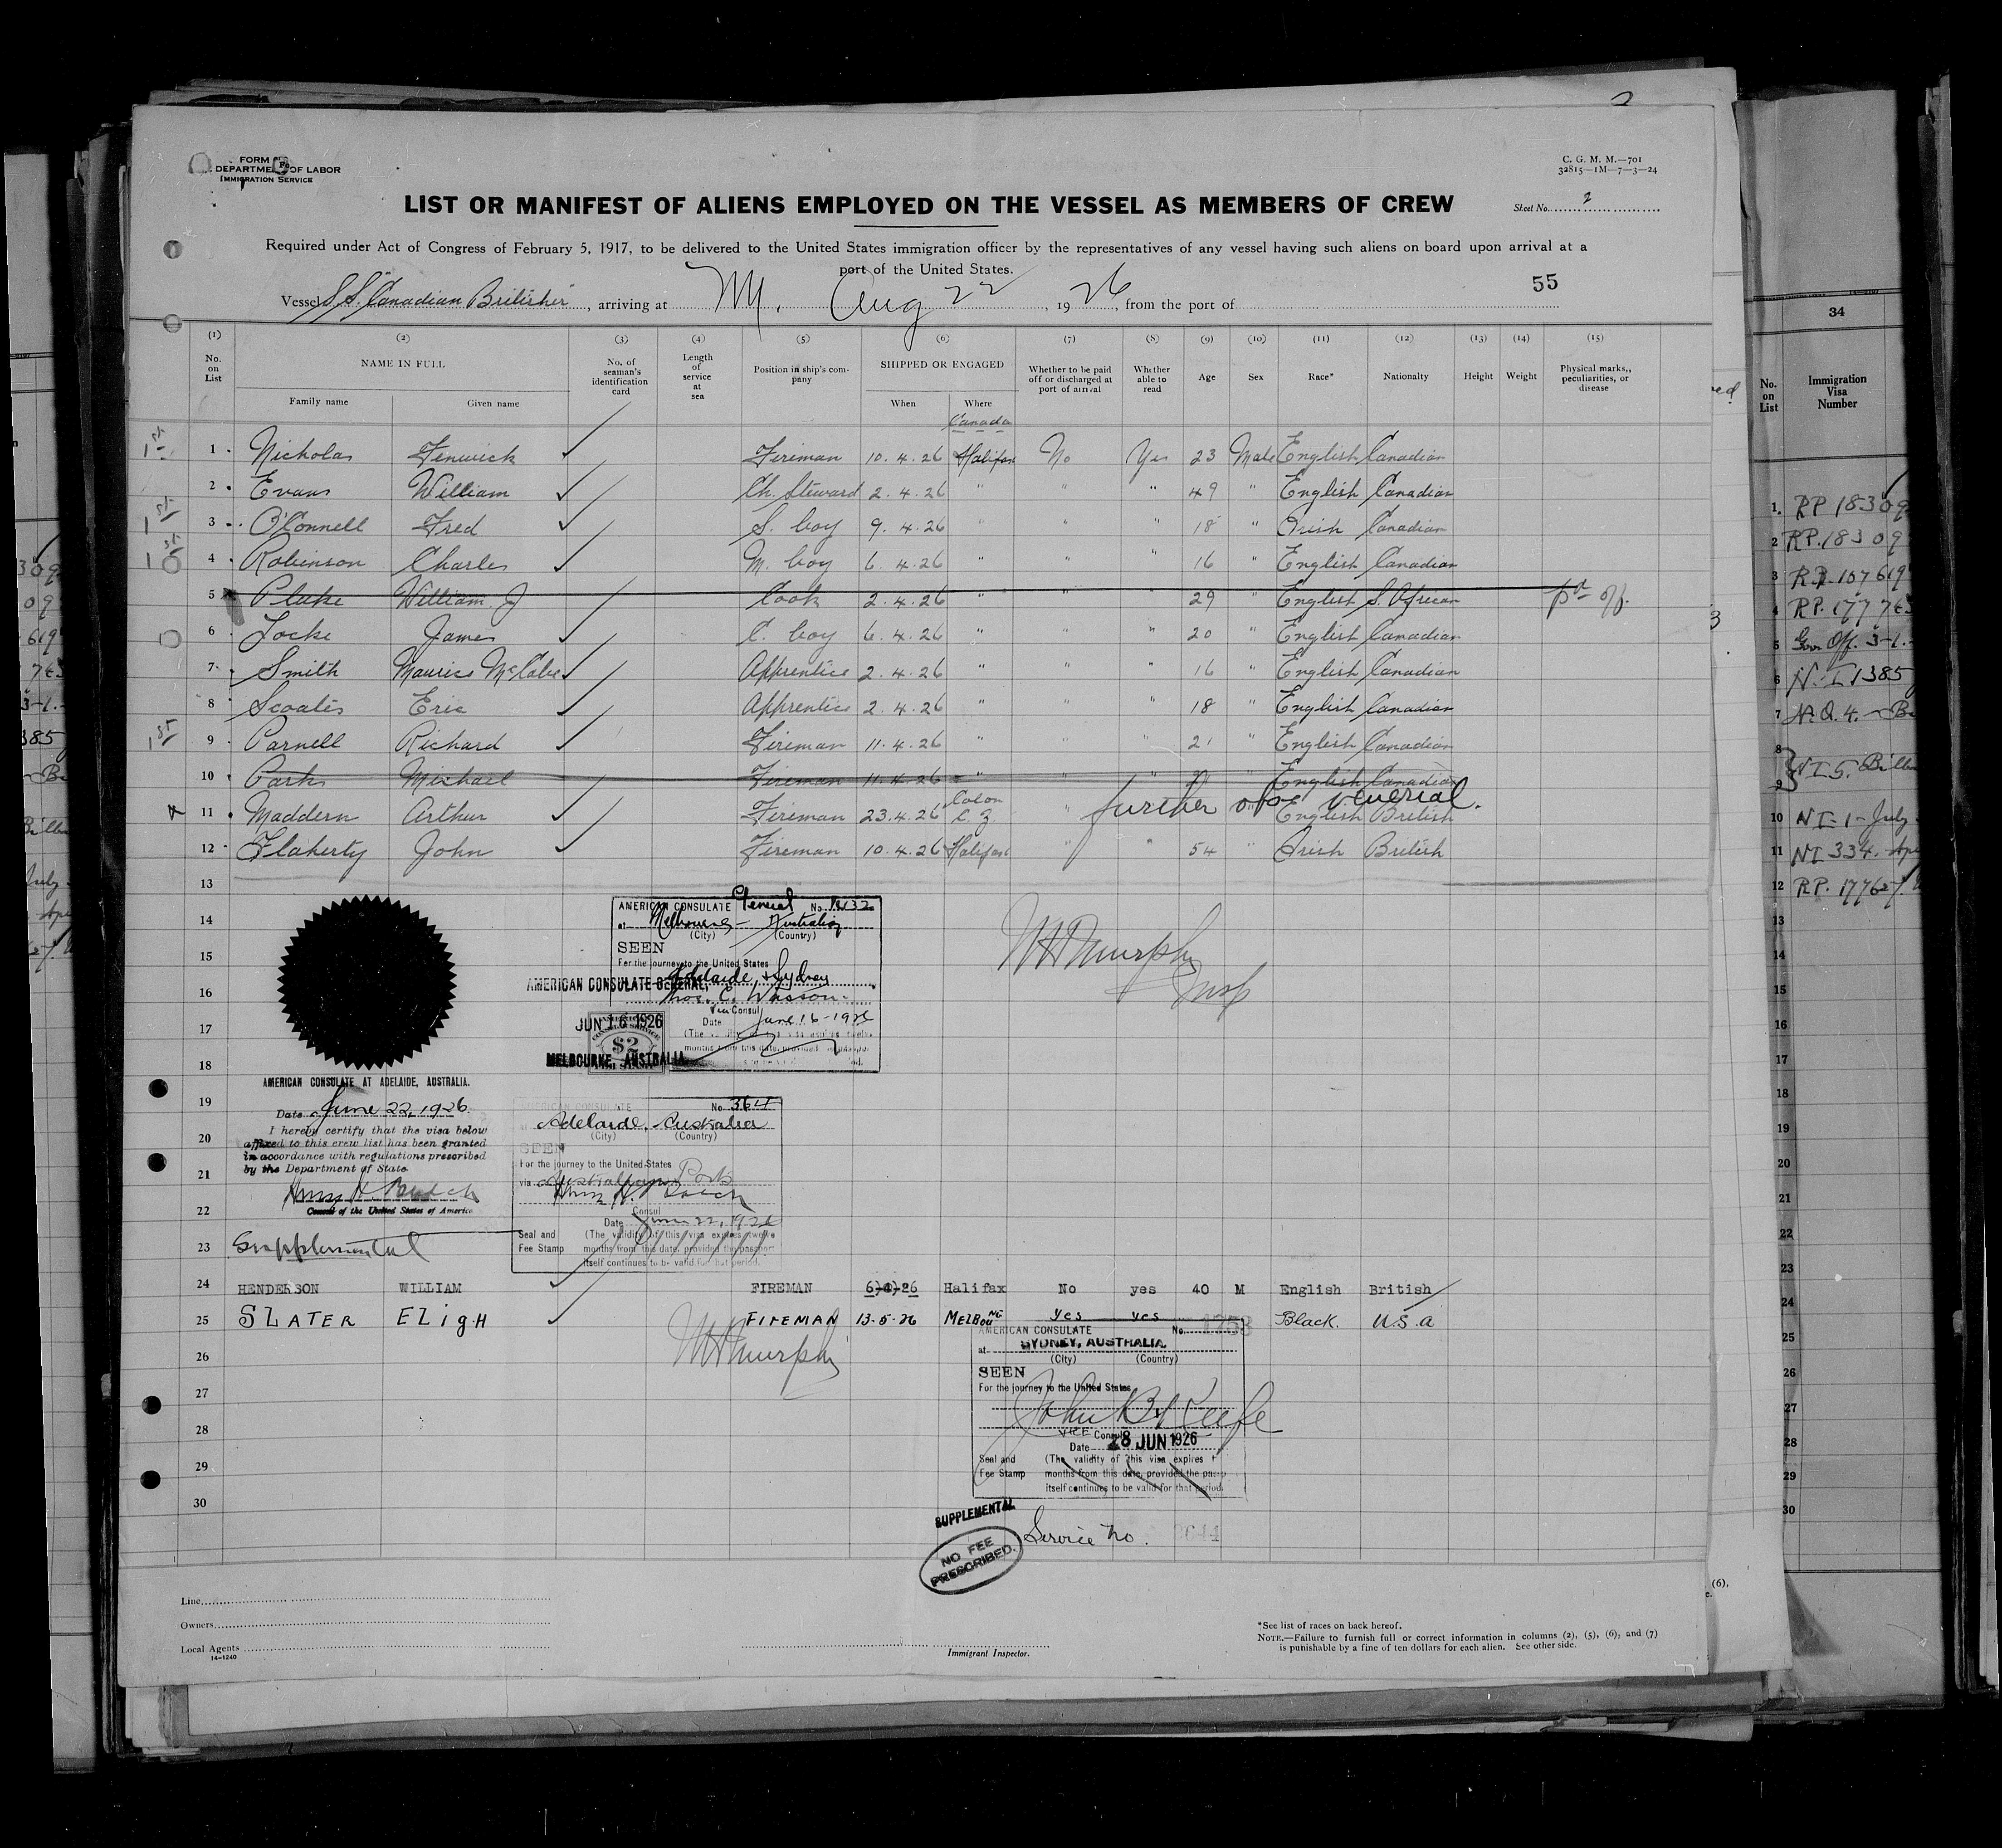 FORM
DEPARTMENT OF LABOR
IMMIGRATION SERVICE
C. G. M. M.—701
32815—1M—7—3—24
LIST OR MANIFEST OF ALIENS EMPLOYED ON THE VESSEL AS MEMBERS OF CREW
Sheet No. 2
Required under Act of Congress of February 5, 1917, to be delivered to the United States immigration officer by the representatives of any vessel having such aliens on board upon arrival at a
port of the United States.
55
Vessel S.S. Canadian Britisher, arriving at NY. Aug 22, 1926, from the port of
(1) (2) (3) (4) (5) (6) (7) (8) (9) (10) (11) (12) (13) (14) (15)
No. on List NAME IN FULL No. of seaman's identification card Length of service at sea Position in ship's company SHIPPED OR ENGAGED Whether to be paid off or discharged at port of arrival Whether able to read Age Sex Race* Nationalty Height Weight Physical marks, peculiarities, or disease
Family name Given name When Where
Canada
1st 1 Nicholas Fenwick Fireman 10.4.26 Halifax No Yes 23 Male English Canadian
2 Evans William Ch. Steward 2.4.26 " " " 49 " English Canadian
1st 3 O'Connell Fred S. boy 9.4.26 " " " 18 " Irish Canadian
1st 4 Robinson Charles M. boy 6.4.26 " " " 16 " English Canadian
5 William J Cook 2.4.26 " " " 29 " English S. African
6 Locke James C. boy 6.4.26 " " " 20 " English Canadian
7 Smith Maurice McCabe Apprentice 2.4.26 " " 16 " English Canadian
8 Scoates Eric Apprentice 2.4.26 " " " 18 " English Canadian
1st 9 Parnell Richard Fireman 11.4.26 " " " 21 " English Canadian
10 Michael Fireman 11.4.26 " " " " English Canadian
11 Maddern Arthur Fireman 23.4.26 Colon C.Z. " further obs. venereal. English British
12 Flaherty John Fireman 10.4.26 Halifax " " 54 " Irish British
13
14
15
16
17
18
AMERICAN CONSULATE General No.
at Melbourne — Australia
(City) (Country)
SEEN
For the journey to the United States
Adelaide & Sydney
AMERICAN CONSULATE GENERAL,
Thos. C. Wasson
Vice Consul
JUN 16 1926
Date June 16-1926
$2
MELBOURNE, AUSTRALIA
W H Murphy
Insp
AMERICAN CONSULATE AT ADELAIDE, AUSTRALIA.
Date June 22, 1926.
I hereby certify that the visa below
affixed to this crew list has been granted
in accordance with regulations prescribed
by the Department of State
Consul of the United States of America
19
20
21
22
AMERICAN CONSULATE No. 364
Adelaide, Australia
(City) (Country)
SEEN
For the journey to the United States
via Australian Ports
Consul
Date June 22, 1926
Seal and Fee Stamp
(The validity of this visa expires twelve
months from this date, provided the passport
itself continues to be valid for that period.
23 Supplemental
24 HENDERSON WILLIAM FIREMAN 6)4)26 Halifax No yes 40 M English British
25 SLATER ELigH FIREMAN 13-5-26 MELBOUNE Yes yes Black. U.S.A
W H Murphy
26
27
28
29
30
AMERICAN CONSULATE No. 1253
at SYDNEY, AUSTRALIA.
(City) (Country)
SEEN
For the journey to the United States
VICE Consul
Date 28 JUN 1926
Seal and Fee Stamp
(The validity of this visa expires
months from this date, provided the
itself continues to be valid for that period.
SUPPLEMENTAL
NO FEE
PRESCRIBED.
Service No. 2644
Line
Owners
Local Agents
14-1240
Immigrant Inspector.
*See list of races on back hereof.
NOTE.—Failure to furnish full or correct information in columns (2), (5), (6), and (7)
is punishable by a fine of ten dollars for each alien. See other side.
34
No. on List
Immigration Visa Number
1 RP 18309
2 RP. 18309
3 RP. 107619
4 RP. 17776
5 Gov Off. 3-1.
6 N.I 1385
7
8
9 NI 5.
10 NI-1-July
11 NI 334.
12 RP. 17762
13
14
15
16
17
18
19
20
21
22
23
24
25
26
27
28
29
30